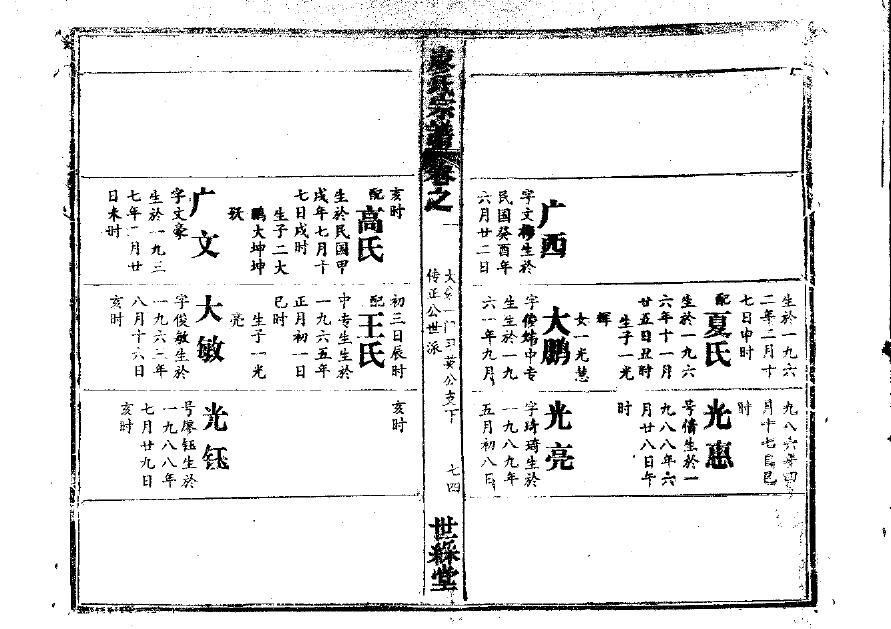 广西
字文生於
民國癸酉年
六月廿二日
生於一九六
二年二月十
七日申时
配夏氏
生於一九六
六年十一月
廿五日丑时
生子一光
輝
女一光慧
大鹏
字俊炜中专
生生於一九
六一年九月
九八六年四
月十七日巳
时
光惠
号倩生於一
九八八年六
月廿八日午
时
光亮
字琦琦生於
一九八九年
五月初八日
廖氏宗譜卷之
一
大一门英公支下
传正公世派
七四
世綵堂
亥时
配高氏
生於民国甲
戌年七月十
七日戌时
生子二大
鹏大坤坤
殁
广文
字文豪
生於一九三
七年月廿
日未时
初三日辰时
配王氏
中专生生於
一九六五年
正月初一日
巳时
生子一光
亮
大敏
字俊敏生於
一九六二年
八月十六日
亥时
亥时
光钰
号廖钰生於
一九八八年
七月廿九日
亥时